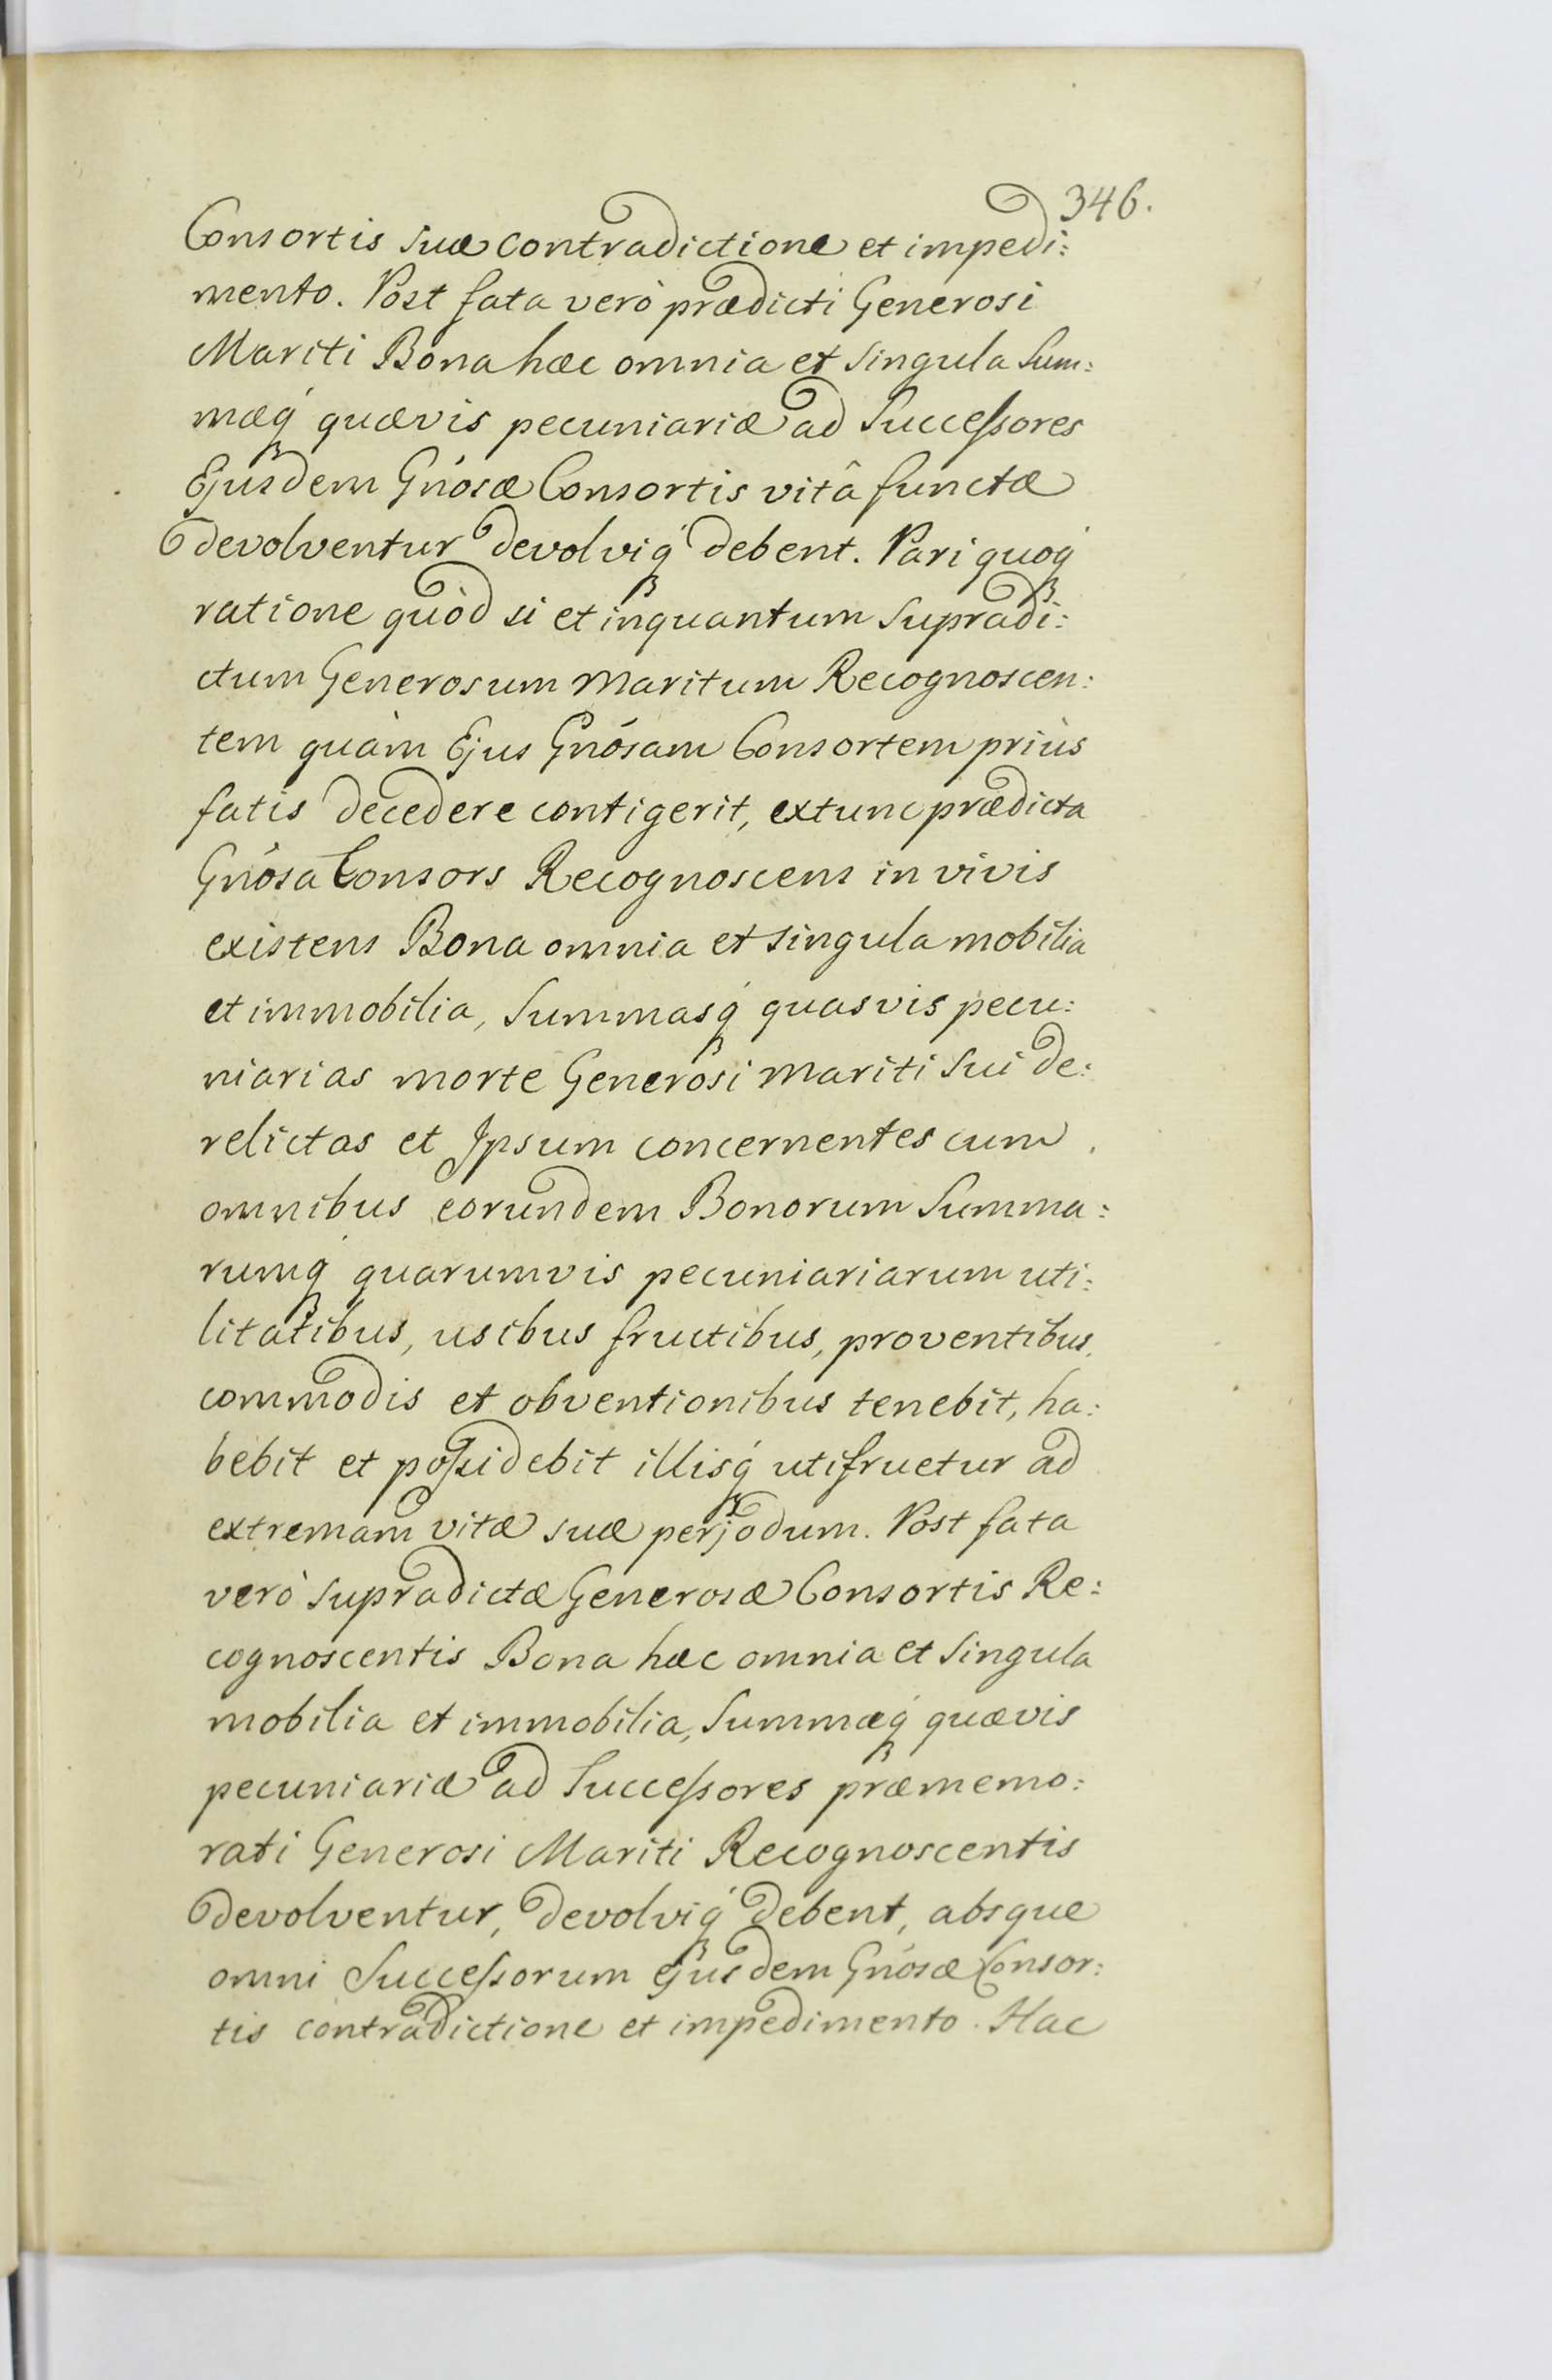 346.
Consortis suæ contradictione et impedi:
mento. Post fata verò prædicti Generosi
Mariti Bona hæc omnia et singula Sum:
mæq́ꝫ quævis pecuniariæ ad Successores
Ejusdem Gnósæ Consortis vitâ functæ
devolventur devolviq́ꝫ debent. Pari quoq́ꝫ
ratione quòd si et inquantum Supradi:
ctum Generosum Maritum Recognoscen:
tem quàm Ejus Gnósam Consortem priùs
fatis decedere contigerit, extunc prædicta
Gnósa Consors Recognoscens in vivis
existens Bona omnia et singula mobilia
et immobilia, Summasq́ꝫ quasvis pecu:
niarias morte Generosi Mariti Sui de:
relictas et Ipsum concernentes cum
omnibus eorundem Bonorum Summa:
rumq́ꝫ quarumvis pecuniariarum uti:
litatibus, usibus fructibus, proventibus,
commodis et obventionibus tenebit, ha:
bebit et possidebit illisq́ꝫ utifruetur ad
extremam vitæ suæ perjodum. Post fata
verò supradictæ Generosæ Consortis Re:
cognoscentis Bona hæc omnia et Singula
mobilia et immobilia, Summæq́ꝫ quævis
pecuniariæ ad Successores præmemo:
rati Generosi Mariti Recognoscentis
devolventur, devolviq́ꝫ debent, absque
omni Successorum ejusdem Gnósæ Consor:
tis contradictione et impedimento. Hac